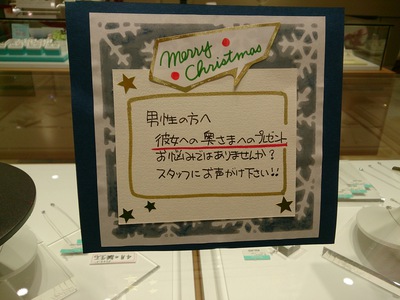 Merry
Christmas
男性の方へ
彼女への奥さまへのプレゼント
お悩みではありませんか?
スタッフにお声がけ下さい!!